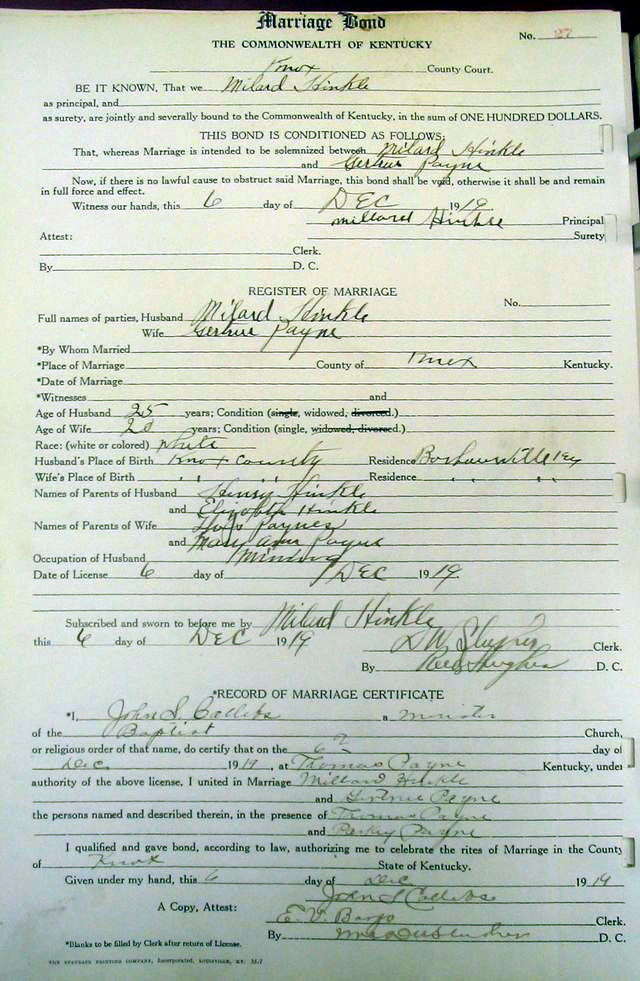 Marriage Bond
No. 27
THE COMMONWEALTH OF KENTUCKY
Knox County Court.
BE IT KNOWN, That we Milard Hinkle
as principal, and
as surety, are jointly and severally bound to the Commonwealth of Kentucky, in the sum of ONE HUNDRED DOLLARS.
THIS BOND IS CONDITIONED AS FOLLOWS:
That, whereas Marriage is intended to be solemnized between Milard Hinkle
and Payne
Now, if there is no lawful cause to obstruct said Marriage, this bond shall be void, otherwise it shall be and remain
in full force and effect.
Witness our hands, this 6 day of DEC 1919
Millard Hinkle Principal
Attest: Surety
Clerk.
By D. C.
REGISTER OF MARRIAGE
No.
Full names of parties, Husband Milard Hinkle
Wife Payne
*By Whom Married
*Place of Marriage County of Knox Kentucky.
*Date of Marriage
*Witnesses and
Age of Husband 25 years; Condition (single, widowed, divorced.)
Age of Wife 20 years; Condition (single, widowed, divorced.)
Race: (white or colored) white
Husband's Place of Birth Knox County Residence Ky
Wife's Place of Birth " " Residence " "
Names of Parents of Husband Henry Hinkle
and Hinkle
Names of Parents of Wife Paynes
and Mary Ann Payne
Occupation of Husband Mining
Date of License 6 day of DEC 1919.
Subscribed and sworn to before me by Milard Hinkle
this 6 day of DEC 1919 Clerk.
By Hughes D. C.
*RECORD OF MARRIAGE CERTIFICATE
*I, John S. a minister
of the Baptist Church,
or religious order of that name, do certify that on the 6 day of
Dec. 1919, at Thomas Payne Kentucky, under
authority of the above license, I united in Marriage Millard Hinkle
and Payne
the persons named and described therein, in the presence of Thomas Payne
and Payne
I qualified and gave bond, according to law, authorizing me to celebrate the rites of Marriage in the County
of Knox State of Kentucky.
Given under my hand, this 6 day of Dec 1919
John S
A Copy, Attest:
E. V. Clerk.
By D. C.
*Blanks to be filled by Clerk after return of License.
THE STANDARD PRINTING COMPANY, Incorporated, LOUISVILLE, KY.